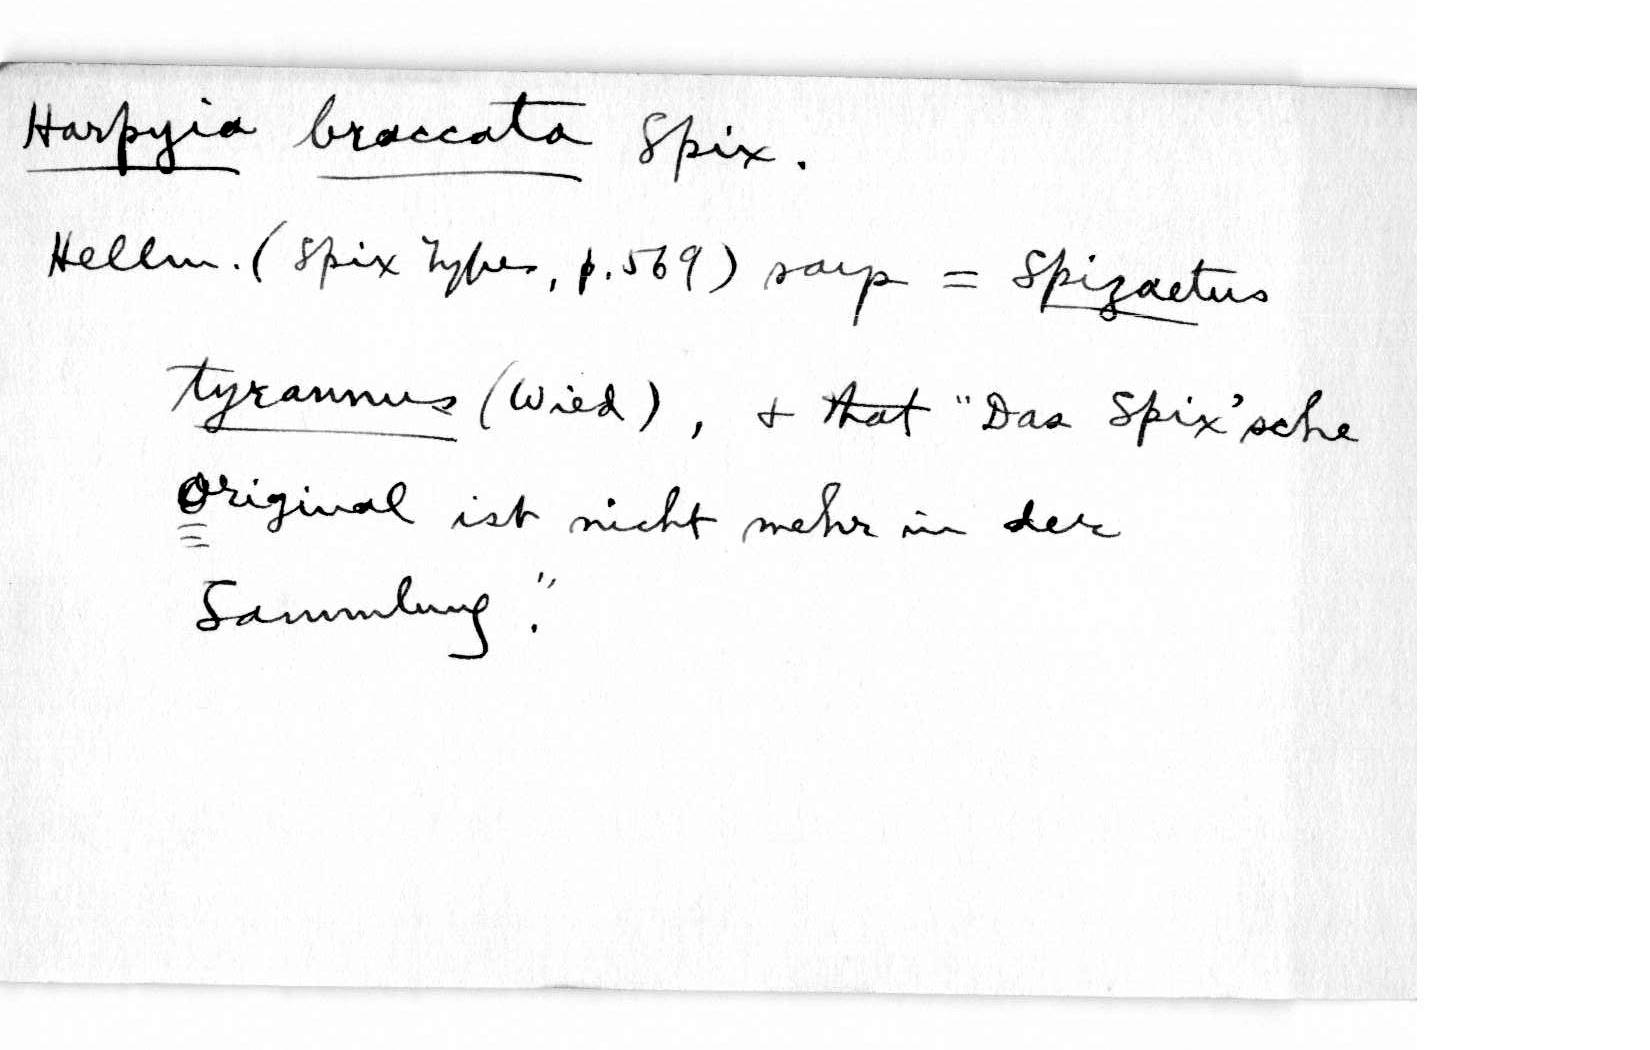 Harpyia braccata Spix.
Hellm. (Spix Types, p. 569) says = Spizaetus
tyrannus (Wied), + that "Das Spix'sche
Original ist nicht mehr in der
Sammlung."